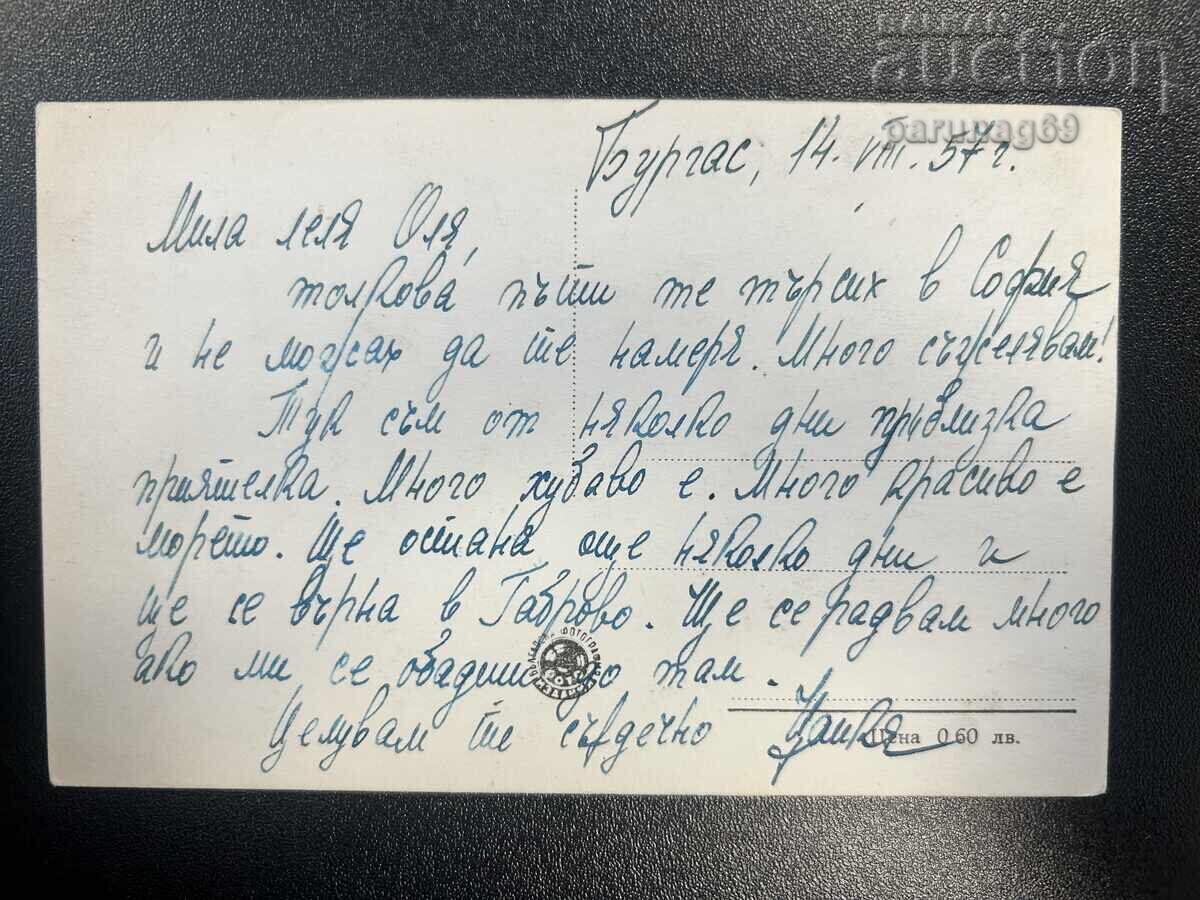 BALKAN
auction
parunag69
Бургас, 14. VIII. 57 г.
Мила леля Оля,
толкова пъти те търсих в София
и не можах да те намеря. Много съжелявам!
Тук съм от няколко дни при близка
приятелка. Много хубаво е. Много красиво е
морето. Ще остана още няколко дни и
ще се върна в Габрово. Ще се радвам много
ако ми се обадиш до там.
Целувам те сърдечно
Цена 0.60 лв.